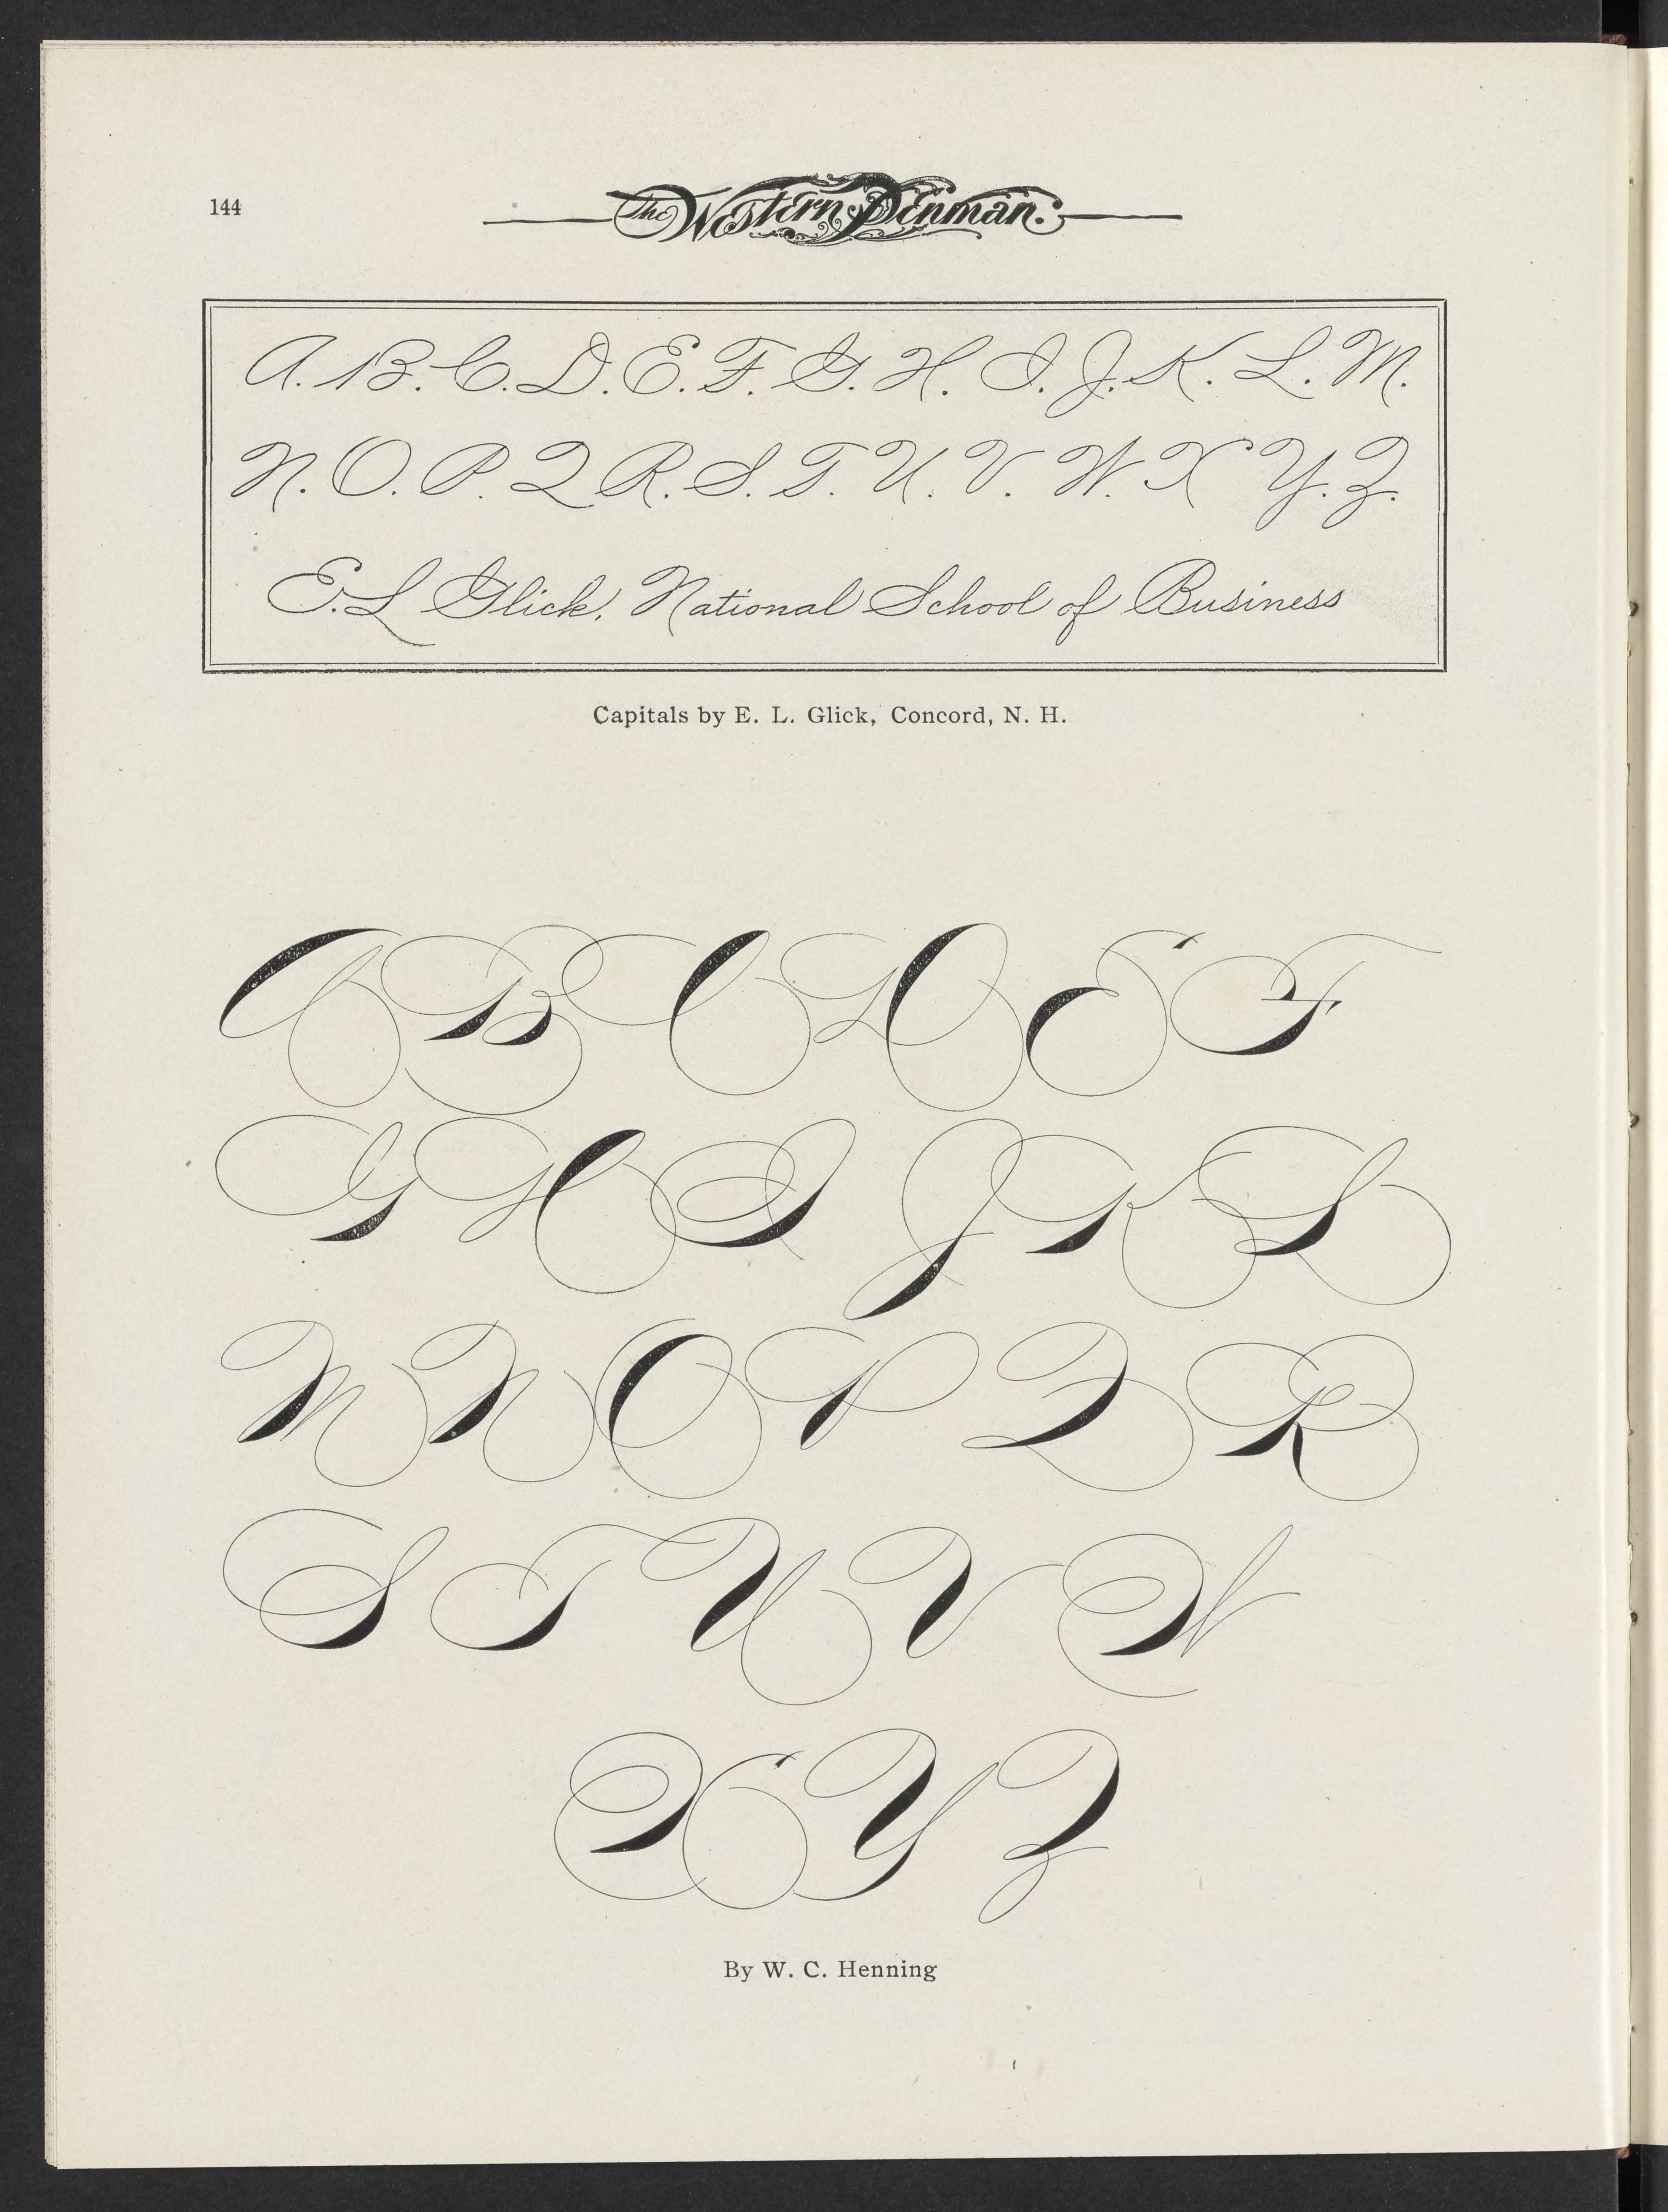 144
The Western Penman.
A. B. C. D. E. F. G. H. I. J. K. L. M.
N. O. P. Q R. S. T. U. V. W. X Y. Z.
E. L Glick, National School of Business
Capitals by E. L. Glick, Concord, N. H.
A B C D E F
G H I J K L
M N O P Q R
S T U V W
X Y Z
By W. C. Henning